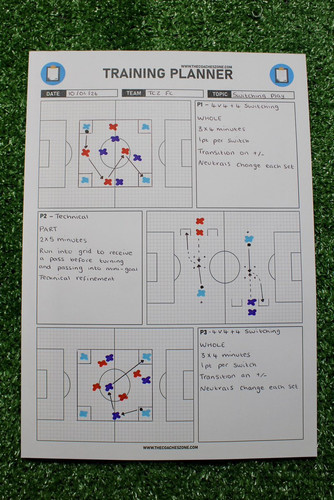 WWW.THECOACHESZONE.COM
TRAINING PLANNER
DATE 10/04/26 TEAM TCZ FC TOPIC Switching Play
P1 - 4v4+4 Switching
WHOLE
3x4 minutes
1pt per switch
Transition on +/-
Neutrals change each set
P2 - Technical
PART
2x5 minutes
Run into grid to receive
a pass before turning
and passing into mini-goal
Technical refinement
P3 - 4v4+4 Switching
WHOLE
3x4 minutes
1pt per switch
Transition on +/-
Neutrals change each set
WWW.THECOACHESZONE.COM